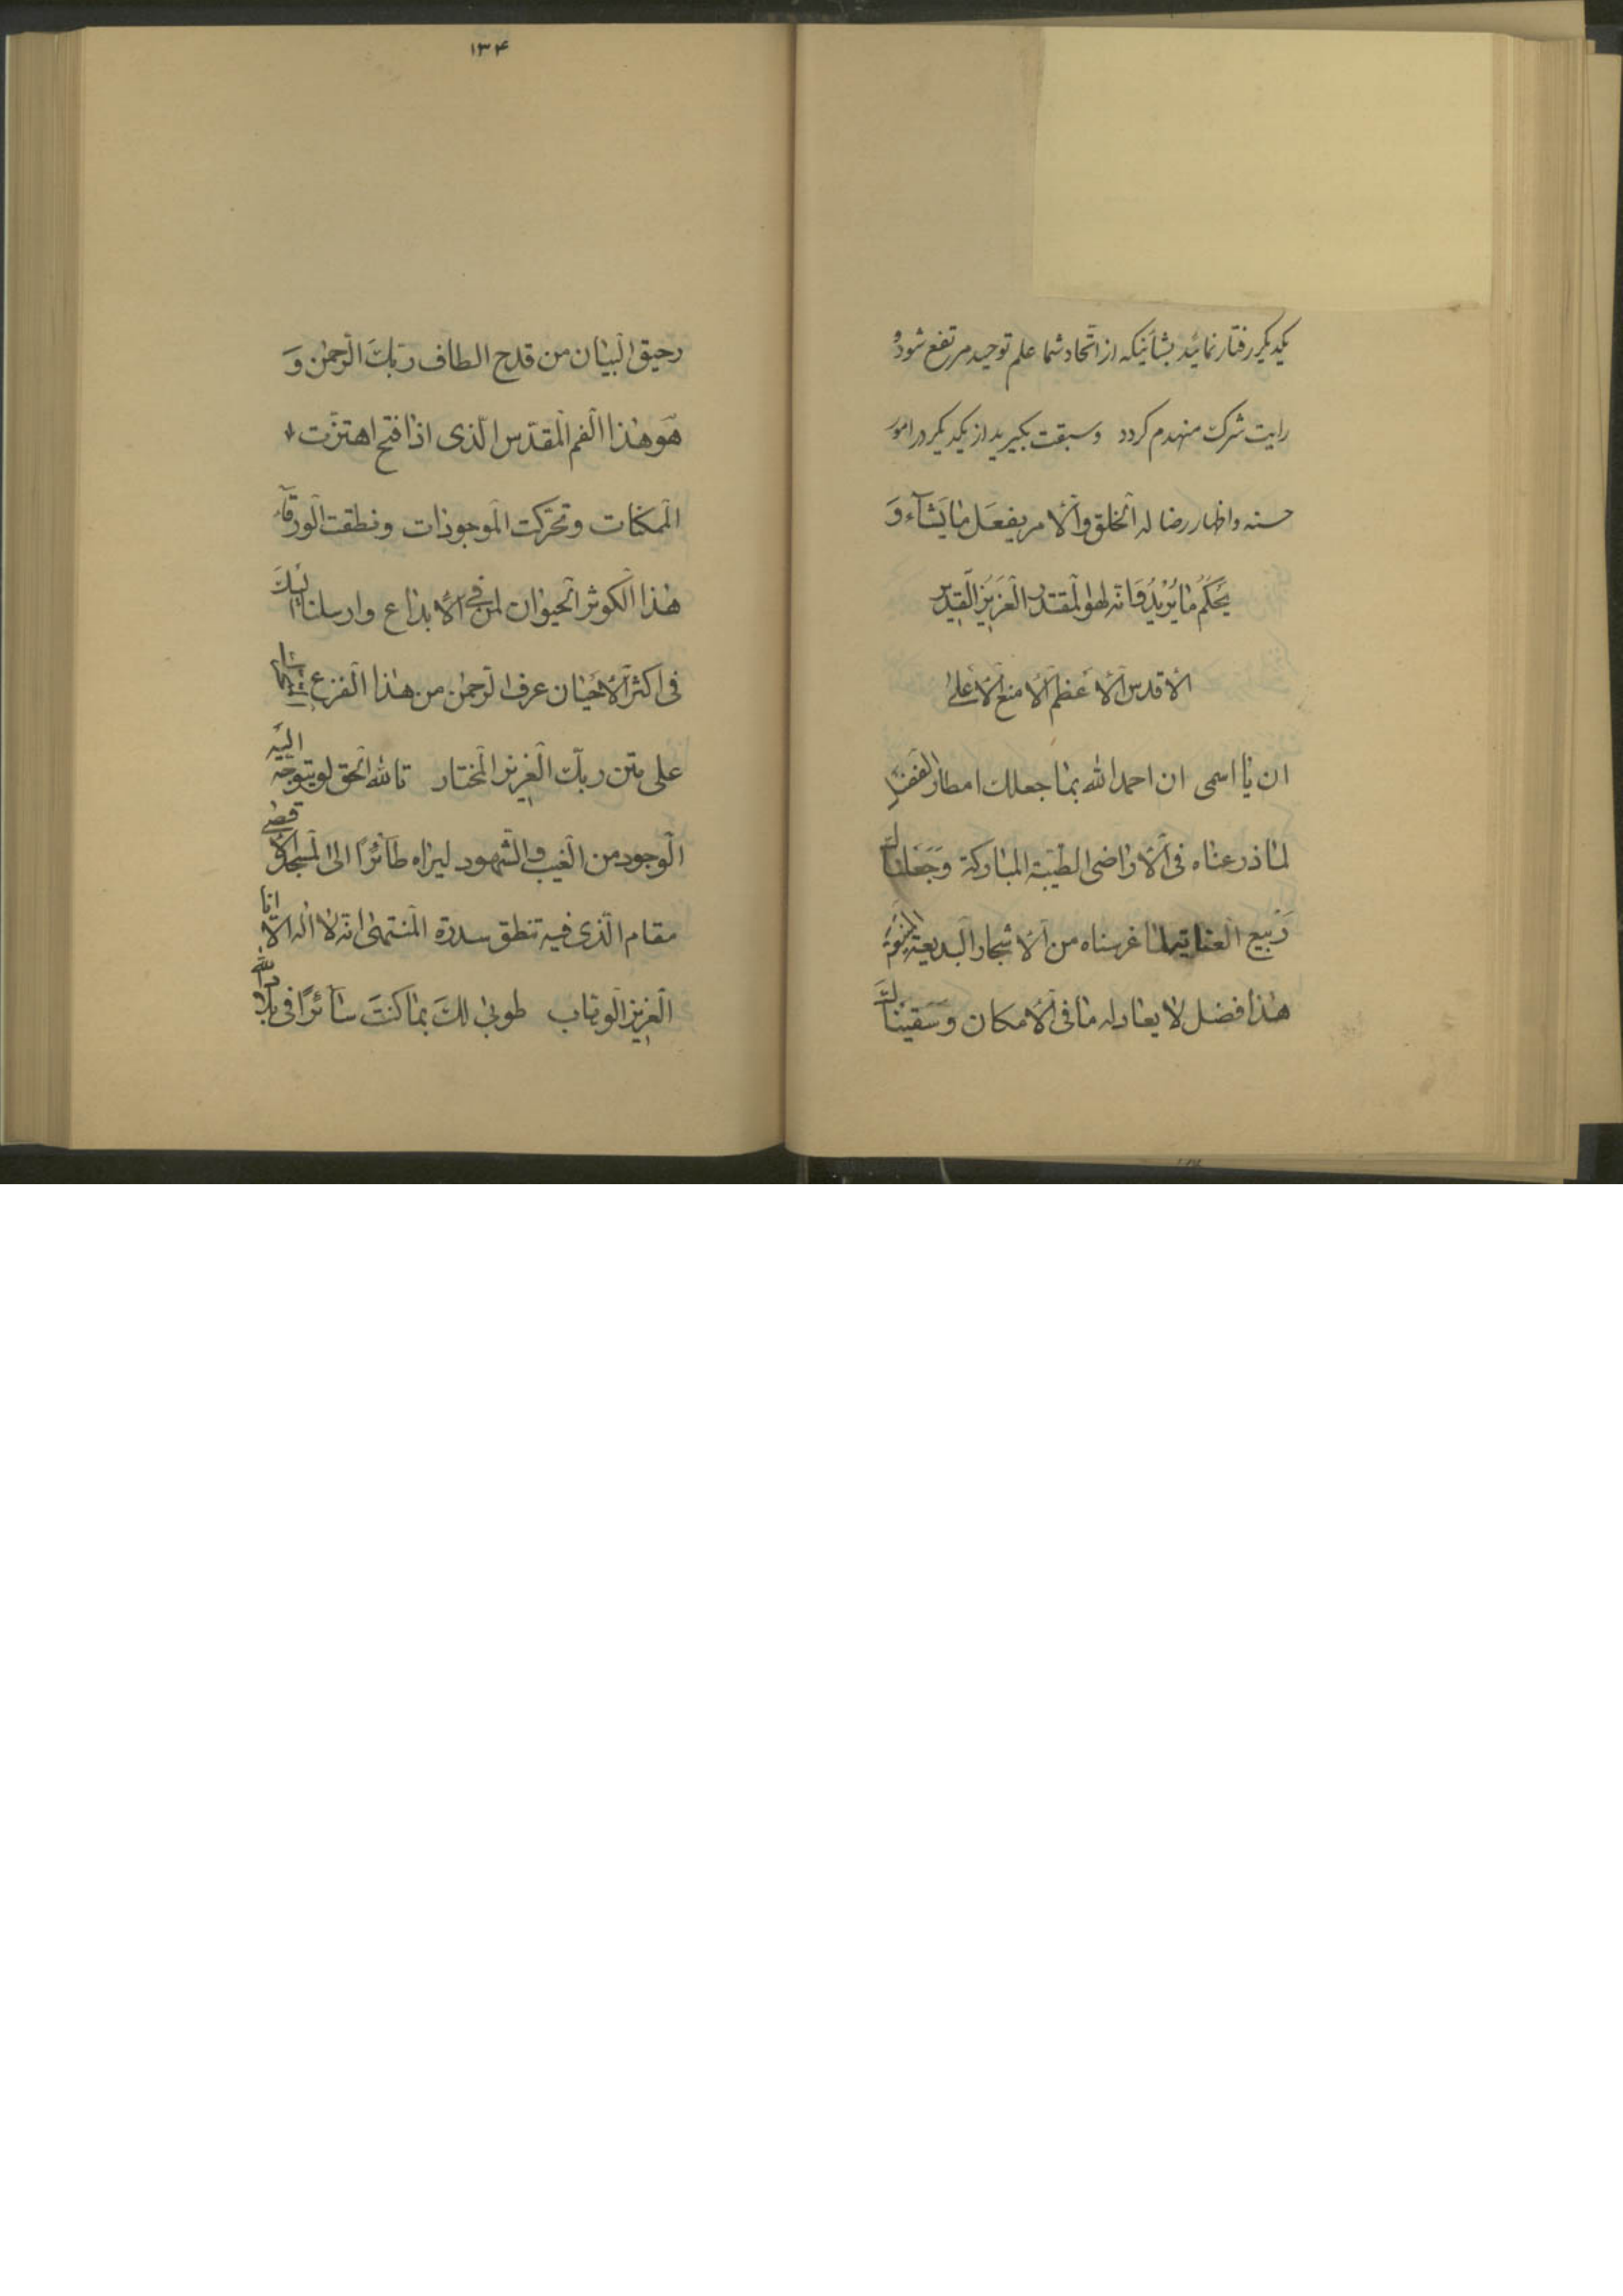 یکدیگر رفتار نمائید بشأنیکه از اتّحاد شما علم توحید مرتفع شود و
رایت شرک منهدم گردد و سبقت بگیرید از یکدیگر در امور
حسنه و اظهار رضا له الخلق و الأمر یفعل ما یشآء وَ
یَحکُمُ ما یُریدُ وَ انّه لهو المقتدر العَزیز القدیر
الأقدس الأعظم الأمنع الأعلی
ان یا اسمی ان احمد الله بما جعلناک امطار الفضل
لما زرعناه فی الأراضی الطّیّبة المبارکة و جَعَلناک
رَبیع العنایة لما غرسناه من الأشجار البدیعة المنیعة
هذا فضل لا یعادله ما فی الأمکان و سَقیناک
۱۳۴
رحیق البیان من قدح الطاف ربّک الرّحمن وَ
هو هذا الفم المقدّس الّذی اذا فتح اهتزّت
الممکنات و تحرّکت الموجودات و نطقت الورقآء
هذا الکوثر الحیوان لمن فی الأبداع و ارسلنا الیک
فی اکثر الأحیان عرف الرّحمن من هذا الفرع
علی متن ربّک العزیز المختار تالله الحق لو یتوجّه الیه
الوجود من الغیب و الشّهود لیراه طآئرًا الی المسجد الأقصی
مقام الّذی فیه تنطق سدرة المنتهی انّه لا اله الّا انا
العزیز الوهّاب طوبی لکَ بما کنتَ سآئرًا فی بلاد الله